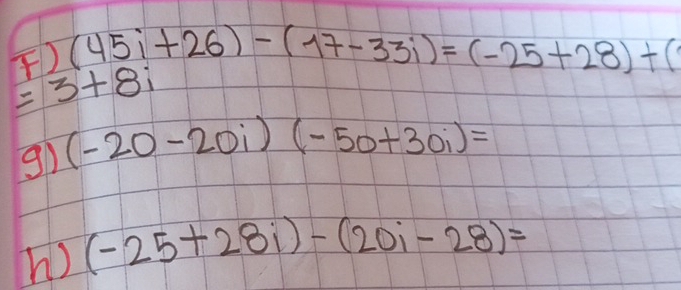 f) (45i+26)-(17-33i)=(-25+28)+(
=3+8i
g) (-20-20i) (-50+30i)=
h) (-25+28i)-(20i-28)=